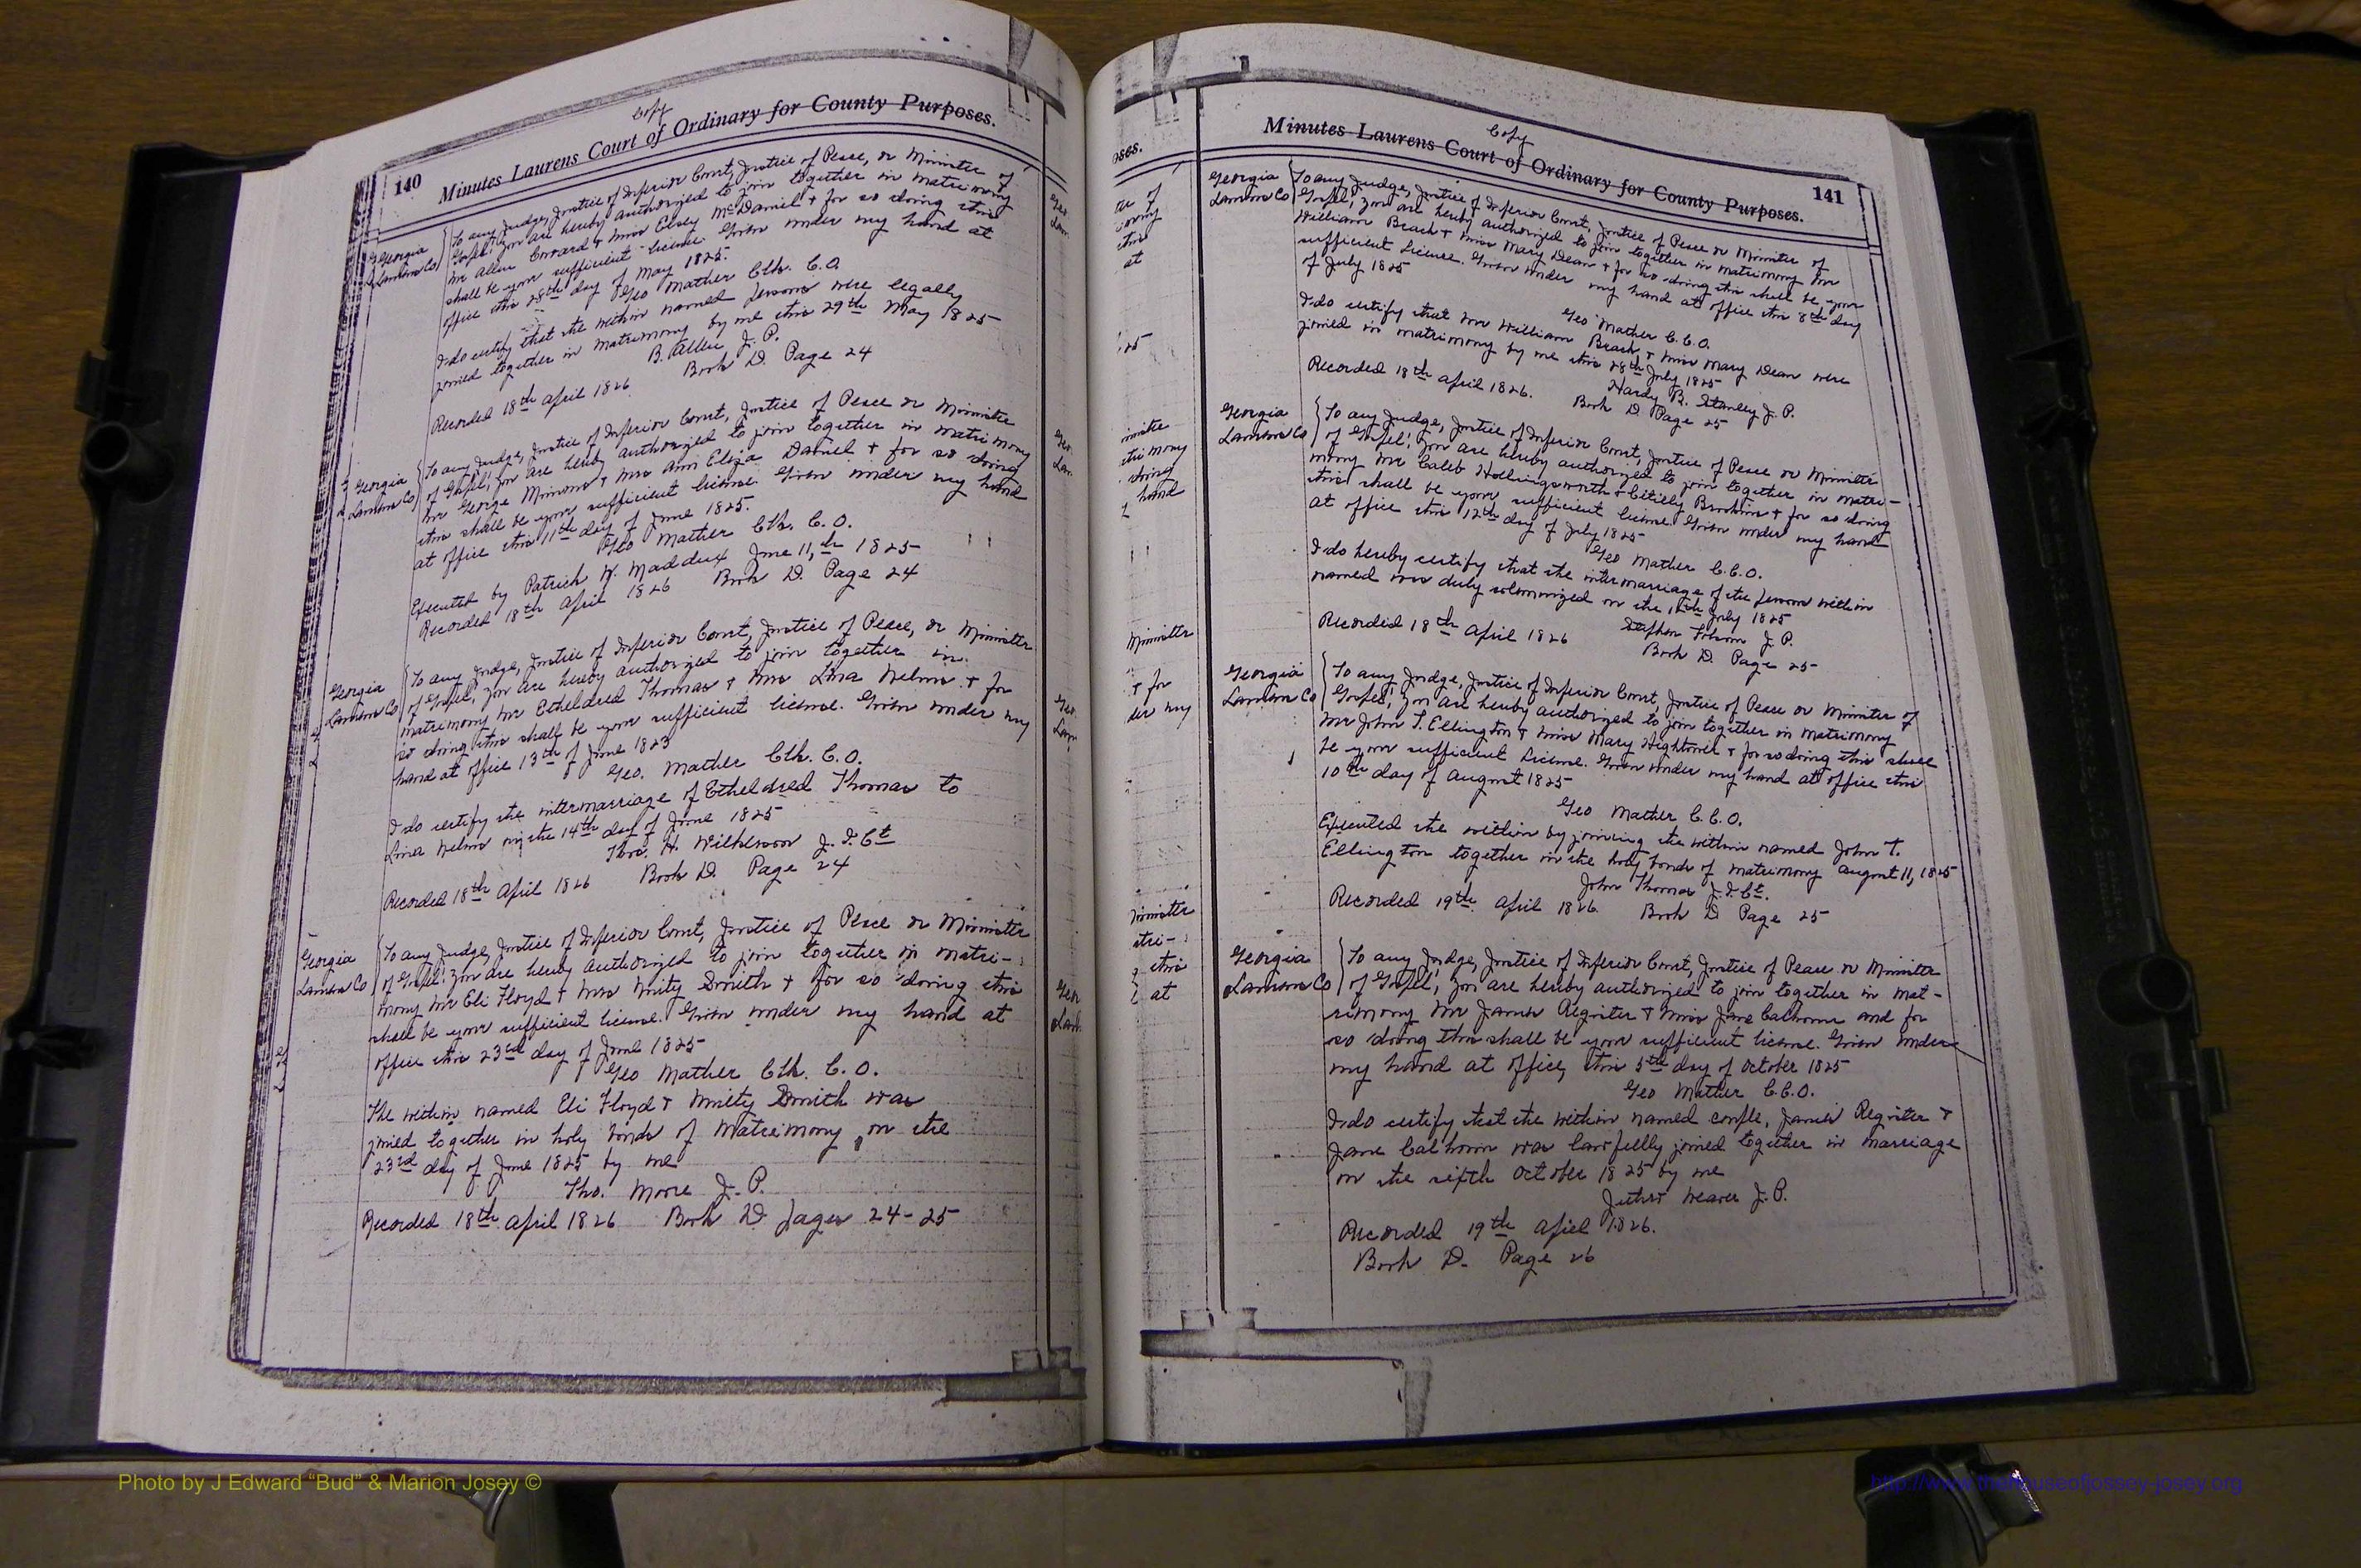 Copy
140 Minutes Laurens Court of Ordinary for County Purposes.
Georgia
Laurens Co
To any Judge, Justice of Inferior Court, Justice of Peace, or Minister of
Gospel; you are hereby authorized to join together in matrimony
Mr Allen & Miss Elsey McDaniel & for so doing this
shall be your sufficient license. Given under my hand at
office this 28th day of May 1825.
Geo Mather Clk. C.O.
I do certify that the within named persons were legally
joined together in matrimony by me this 29th May 1825
B. Allen J.P.
Recorded 18th April 1826 Book D. Page 24
Georgia
Laurens Co
To any Judge, Justice of Inferior Court, Justice of Peace or Minister
of Gospel; you are hereby authorized to join together in matrimony
Mr George & Mrs Ann Eliza Daniel & for so doing
this shall be your sufficient license. Given under my hand
at office this 11th day of June 1825.
Geo Mather Clk. C.O.
Executed by Patrick H. Maddux June 11,th 1825
Recorded 18th April 1826 Book D. Page 24
Georgia
Laurens Co
To any Judge, Justice of Inferior Court, Justice of Peace, or Minister
of Gospel; you are hereby authorized to join together in
matrimony Mr Etheldred Thomas & Mrs Lina & for
so doing this shall be your sufficient license. Given under my
hand at office 13th of June 1825
Geo. Mather Clk. C.O.
I do certify the intermarriage of Etheldred Thomas to
Lina on the 14th day of June 1825
Thos. H. Wilkinson J.I.Ct
Recorded 18th April 1826 Book D. Page 24
Georgia
Laurens Co
To any Judge, Justice of Inferior Court, Justice of Peace or Minister
of Gospel: you are hereby authorized to join together in matri-
mony Mr Eli Floyd & Mrs Smith & for so doing this
shall be your sufficient license. Given under my hand at
office this 23rd day of June 1825
Geo Mather Clk. C.O.
The within named Eli Floyd & Smith was
joined together in holy bonds of Matrimony on the
23rd day of June 1825 by me
Tho. Moore J.P.
Recorded 18th April 1826 Book D pages 24-25
Copy
Minutes Laurens Court of Ordinary for County Purposes. 141
Georgia
Laurens Co
To any Judge, Justice of Inferior Court, Justice of Peace or Minister of
Gospel; you are hereby authorized to join together in matrimony Mr
William Beach & Miss Mary Dean & for so doing this shall be your
sufficient License. Given under my hand at office this 8th day
of July 1825
Geo Mather C.C.O.
I do certify that Mr William Beach & Miss Mary Dean were
joined in matrimony by me this 28th July 1825
Hardy B. Stanley J.P.
Recorded 18th April 1826. Book D Page 25
Georgia
Laurens Co
To any Judge, Justice of Inferior Court, Justice of Peace or Minister
of Gospel; you are hereby authorized to join together in matri-
mony Mr Caleb Hollingsworth & & for so doing
this shall be your sufficient license. Given under my hand
at office this 12th day of July 1825
Geo Mather C.C.O.
I do hereby certify that the intermarriage of the persons within
named was duly solemnized on the July 1825
Stephen J.P.
Recorded 18th April 1826 Book D. Page 25
Georgia
Laurens Co
To any Judge, Justice of Inferior Court, Justice of Peace or Minister of
Gospel; you are hereby authorized to join together in matrimony
Mr John T. Ellington & Miss Mary Hightower & for so doing this shall
be your sufficient License. Given under my hand at office this
10th day of August 1825
Geo Mather C.C.O.
Executed the within by joining the within named John T.
Ellington together in the holy bonds of matrimony August 11, 1825
John Thomas J.I.Ct.
Recorded 19th April 1826 Book D Page 25
Georgia
Laurens Co
To any Judge, Justice of Inferior Court, Justice of Peace or Minister
of Gospel; you are hereby authorized to join together in mat-
rimony Mr James Register & Miss Jane Calhoun and for
so doing this shall be your sufficient license. Given under
my hand at office, this 5th day of October 1825
Geo Mather C.C.O.
I do certify that the within named couple, James Register &
Jane Calhoun was lawfully joined together in marriage
on the sixth October 1825 by me
Weaver J.P.
Recorded 19th April 1826.
Book D. Page 26
Photo by J Edward “Bud” & Marion Josey ©
http://www.thehouseofjossey-josey.org